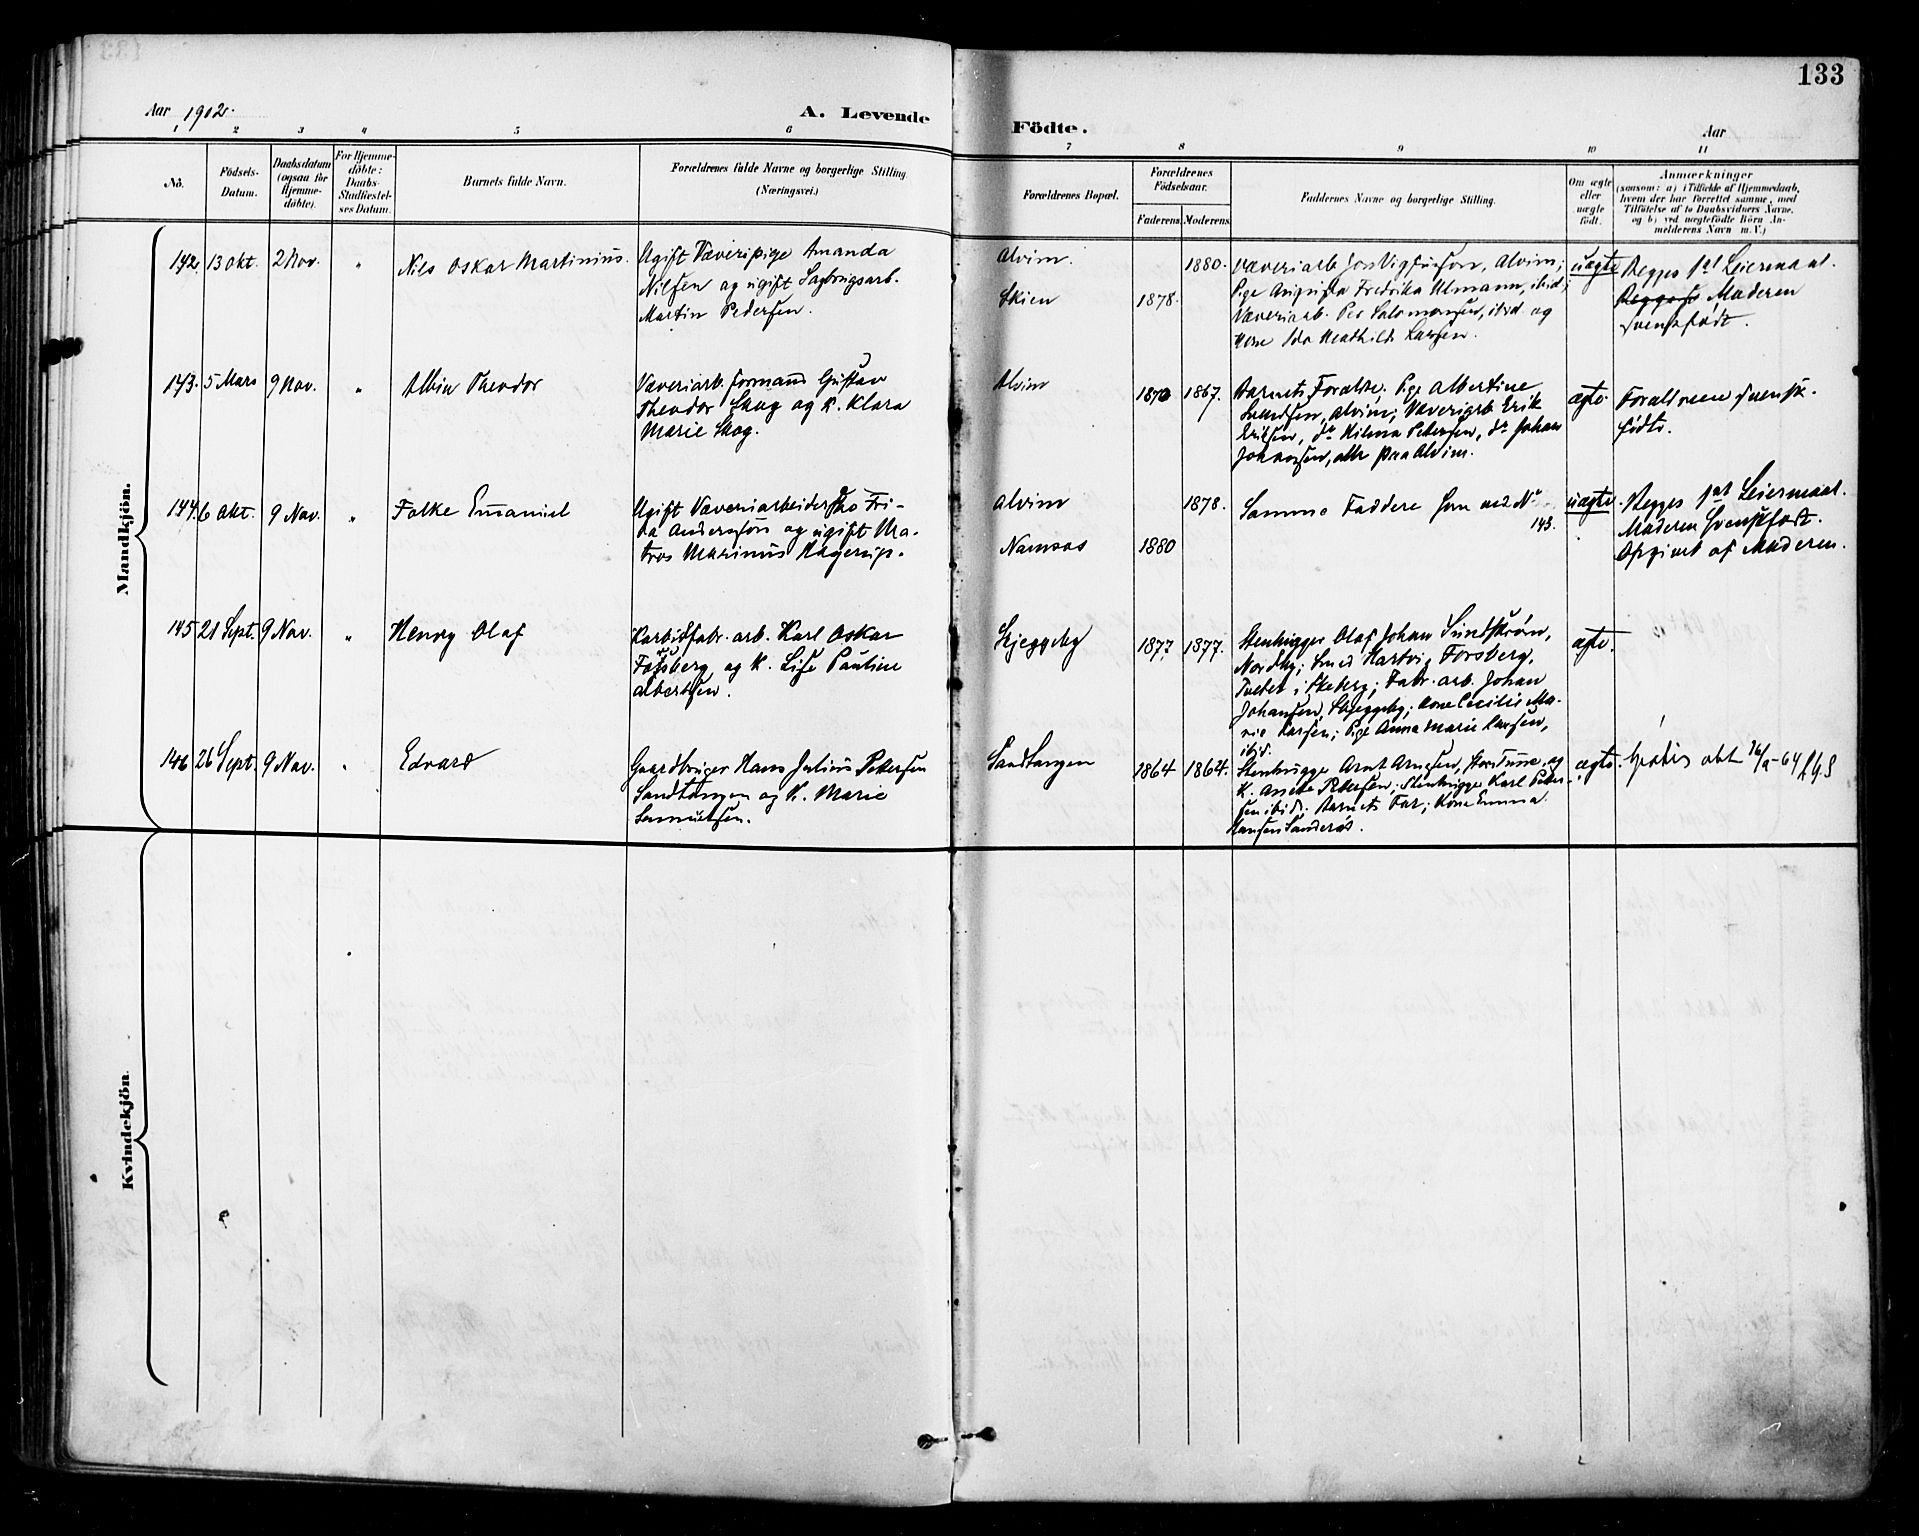 133
Aar 1902.
A. Levende
Födte.
Aar
1
2
3
4
5
6
7
8
9
10
11
No.
Födsels-
Datum.
Daabsdatum
(ogsaa for
Hjemme-
döbte).
For Hjemme-
döbte:
Daabs-
Stadfæstel-
ses Datum.
Barnets fulde Navn.
Forældrenes fulde Navne og borgerlige Stilling.
(Næringsvei.)
Forældrenes Bopæl.
Forældrenes
Födselsaar.
Faderens.
Moderens.
Faddernes Navne og borgerlige Stilling.
Om ægte
eller
uægte
født.
Anmærkninger
(saasom: a) i Tilfælde af Hjemmedaab,
hvem der har forrettet samme, med
Tilføielse af to Daabsvidners Navne,
og b) ved uægtefödte Börn An-
melderens Navn m. V.)
Mandkjön.
142. 13 Okt. 2 Nov. " Nils Oskar Martinius.
Ugift Væveripige Amanda
Nilsen og ugift Sagbrugsarb.
Martin Pedersen.
Alvim.
Skien
1878.
1880.
Væveriarb. Alvim;
Pige Augusta Fredrika Ulmann, ibid;
Væveriarb. Per Salomonsen, ibid. og
Kone Ida Mathilde Larsen.
uægte
Begges 1st Leiermaal.
Begges Moderen
svenskfødt.
143. 5 Mars 9 Nov. " Albin Theodor
Væveriarb. formand Gustav
Theodor Skog og K. Klara
Marie Skog.
Alvim
1870
1867.
Barnets Forældre; Pige Albertine
Svendsen, Alvim; Væveriarb. Erik
Eriksen, do Hilma Petersen, do Johan
Johansen, alle paa Alvim.
ægte.
Forældrene svensk-
fødte.
144. 6 Okt. 9 Nov. " Folke Emanuel
Ugift Væveriarbeiderske Fri-
da Andersson og ugift Ma-
tros Marinius Hagerup.
Alvim
Namsos
1880
1878.
Samme Faddere som ved No
143.
uægte.
Begges 1st Leiermaal.
Moderen svenskfødt.
Opgivet af Moderen.
145 21 Sept. 9 Nov. " Henry Olaf
Karbidfabr. arb. Karl Oskar
Forsberg og K. Lise Pauline
Albertsen.
Skjeggeby
1877
1877.
Stenhugger Olaf Johan Sundstrøm,
Nordby; Smed Hartvig Forsberg,
Tvetet i Skeberg; Fabr. arb. Johan
Johansen, Skjeggeby; Kone Cecilie Ma-
rie Larsen; Pige Anna Marie Larsen,
ibid.
ægte.
146 26 Sept. 9 Nov. " Edvard
Gaardbruger Hans Julius Petersen
Sandtangen og K. Marie
Samuelsen.
Sandtangen
1864
1864.
Stenhugge Arnt Arnesen, Store Tune, og
K. Anette Petersen; Stenhugge Karl Peter-
sen ibid; Barnets Far; Kone Emma
Hansen Sanderød.
ægte.
Gratis
Kvindekjön.